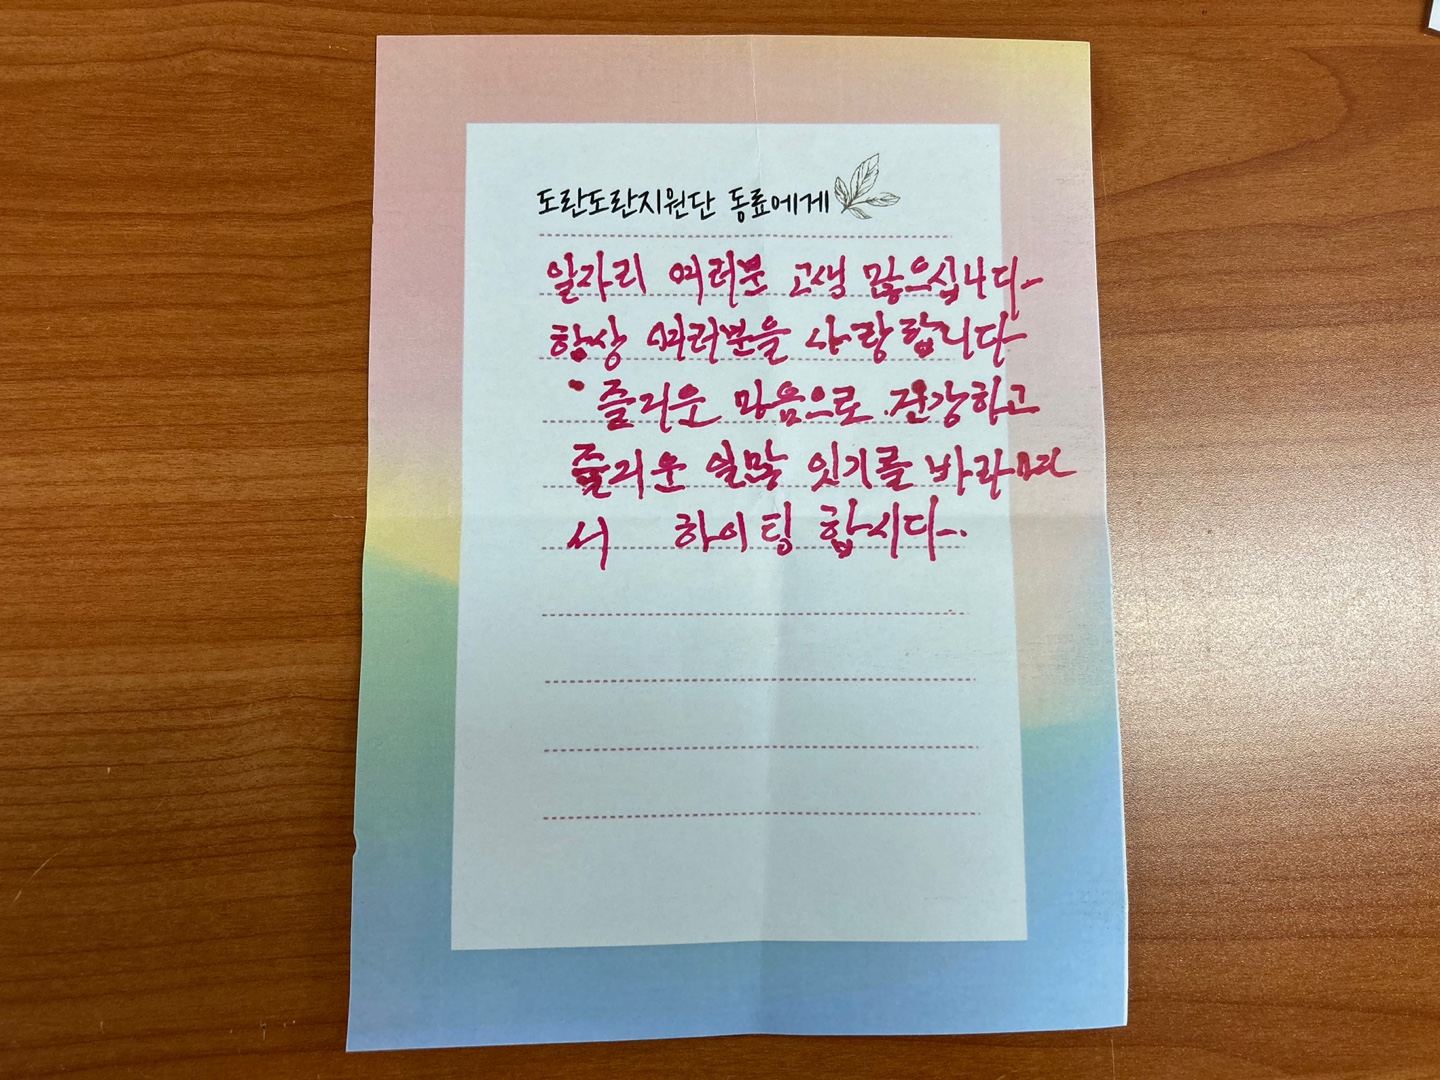 도란도란지원단 동료에게
일자리 여러분 고생 많으십니다
항상 여러분을 사랑합니다
즐거운 마음으로 건강하고
즐거운 일많 잇기를 바라며
서 하이팅 합시다.